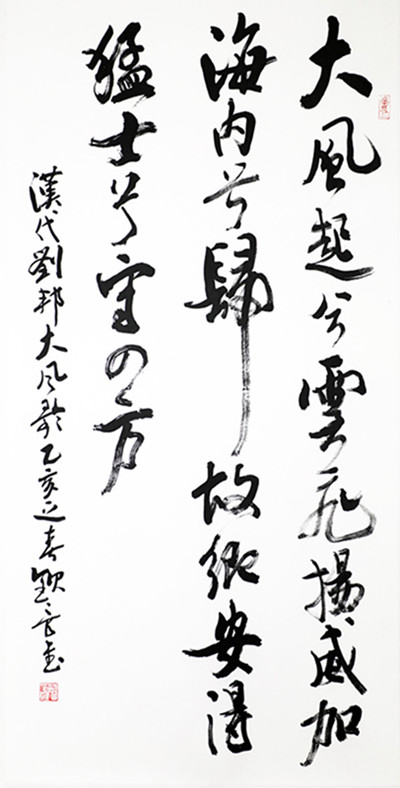 大風起兮雲飛揚威加
海内兮歸故鄉安得
猛士兮守四方
漢代劉邦大風歌乙亥之春